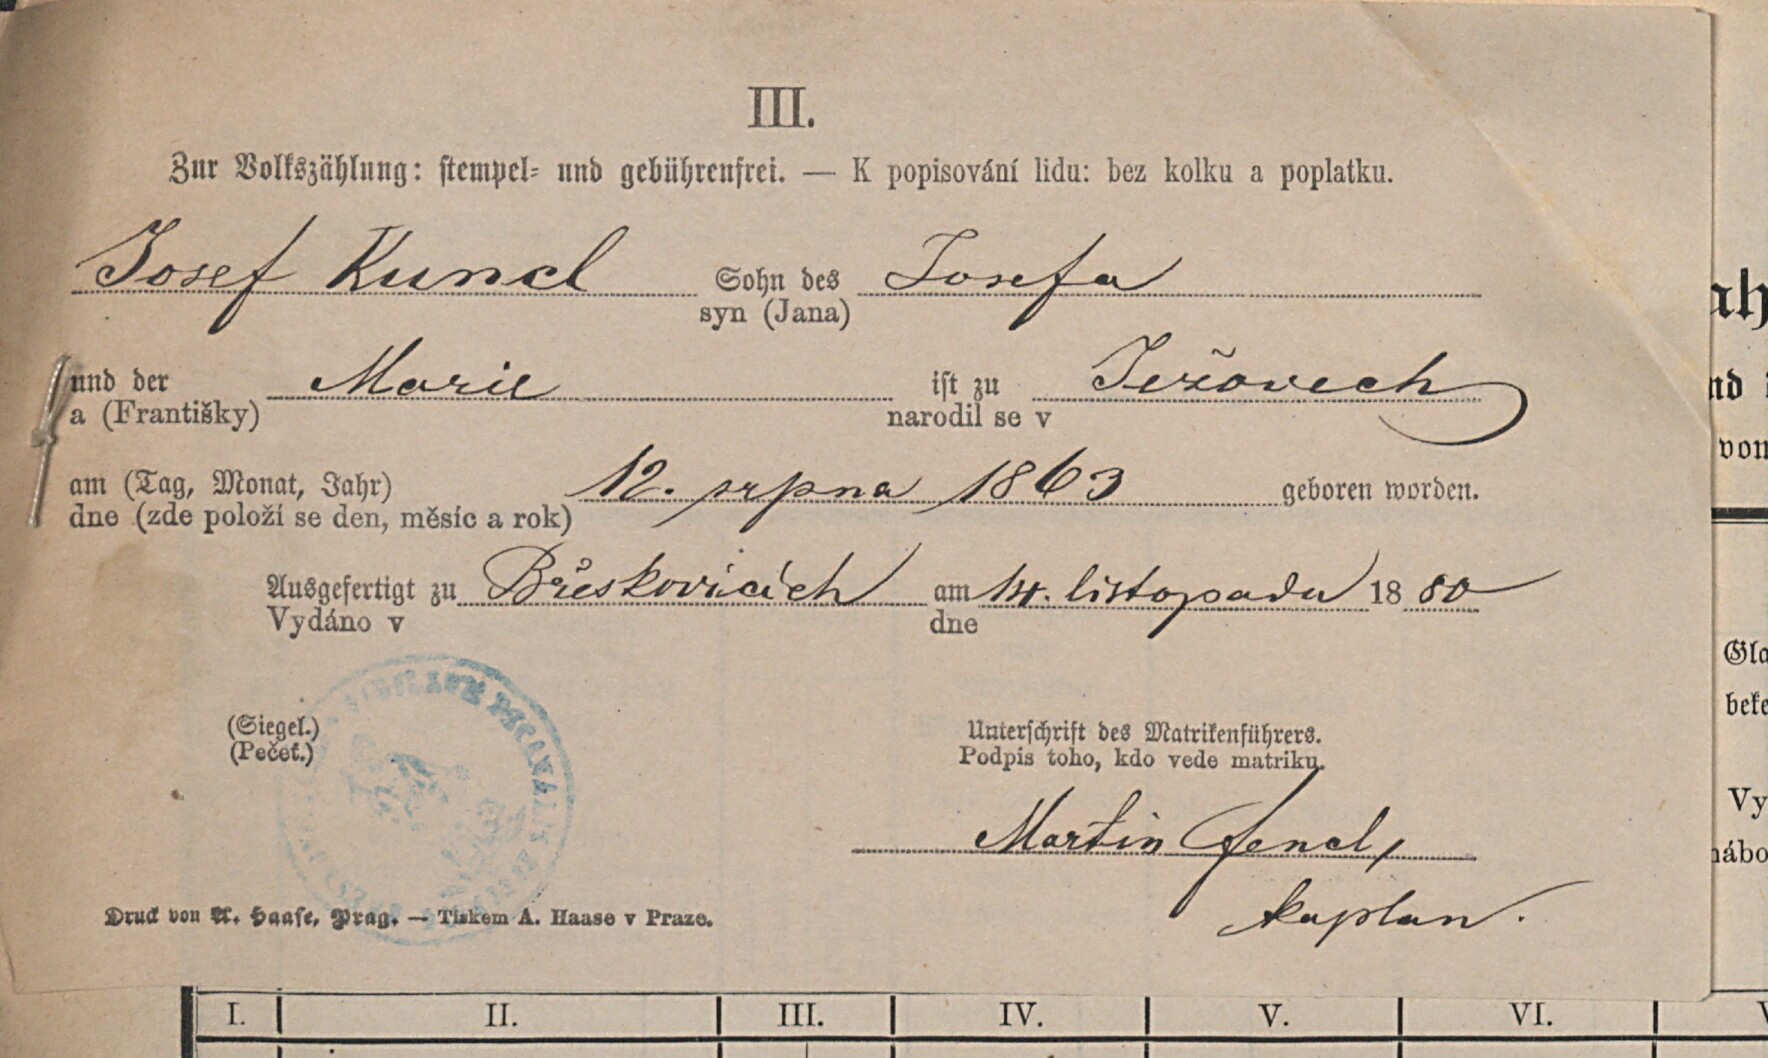 III.
Zur Volkszählung: stempel- und gebührenfrei. — K popisování lidu: bez kolku a poplatku.
Josef Kuncl Sohn des Josefa
syn (Jana)
und der Marie ist zu Ježovech
a (Františky) narodil se v
am (Tag, Monat, Jahr) 12. srpna 1863 geboren worden.
dne (zde položí se den, měsíc a rok)
Ausgefertigt zu Břeskovicích am 14. listopadu 1880
Vydáno v dne
(Siegel.) Unterschrift des Matrikenführers.
(Pečeť.) Podpis toho, kdo vede matriku.
Martin Jencl,
kaplan.
Druck von A. Haase, Prag. — Tiskem A. Haase v Praze.
I. II. III. IV. V. VI.
nd
von
Gla
beke
Vy
nábo